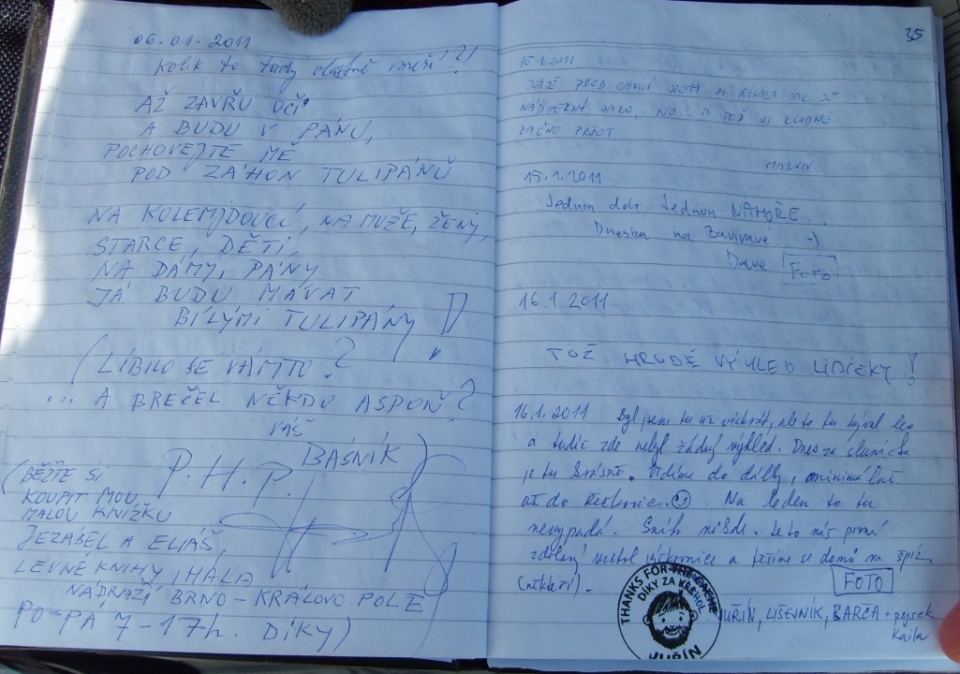 06.01.2011
Kolik to tady vlastně měří?!
AŽ ZAVŘU OČI
A BUDU V PÁNU,
POCHOVEJTE MĚ
POD ZÁHON TULIPÁNŮ
NA KOLEMJDOUCÍ, NA MUŽE, ŽENY,
STARCE, DĚTI,
NA DÁMY, PÁNY
JÁ BUDU MÁVAT
BÍLÝMI TULIPÁNY!
(LÍBILO SE VÁM TO?
... A BREČEL NĚKDO ASPOŇ?
VÁŠ
P.H.P. BÁSNÍK)
(BĚŽTE SI
KOUPIT MOU
MALOU KNÍŽKU
JEZABEL A ELIÁŠ,
LEVNÉ KNIHY IHÁLA
NÁDRAŽÍ BRNO-KRÁLOVO POLE
PO-PÁ 7-17h. DÍKY)
35
15.1.2011
JEŠTĚ PŘED JSEM
NÁDHERNÝ JARO, NO.. A TEĎ SI KLIDNĚ
ZAČNE PRŠET
MARVIN
15.1.2011
Jednou dole Jednou NAHOŘE...
Dneska na Zavíravé :-)
Dave FOTO
16.1.2011
TOŽ HRUDÉ VÝHLED LIDIČKY!
16.1.2011 Byl jsem tu už víckrát, ale to tu býval les
a tudíž zde nebyl žádný výhled. Dnes za sluníčka
je tu krásně. Vidíme do dálky, minimálně
až do . Na leden to tu
nevypadá. Sníh nikde. Je to náš první
zdolaný vrchol a letíme se domů na
(někteří). FOTO
THANKS FOR THE CACHE
DÍKY ZA KEŠKU!
JUŘÍN
JUŘÍN, LIŠEJNÍK, BARČA + pejsek
Kaila